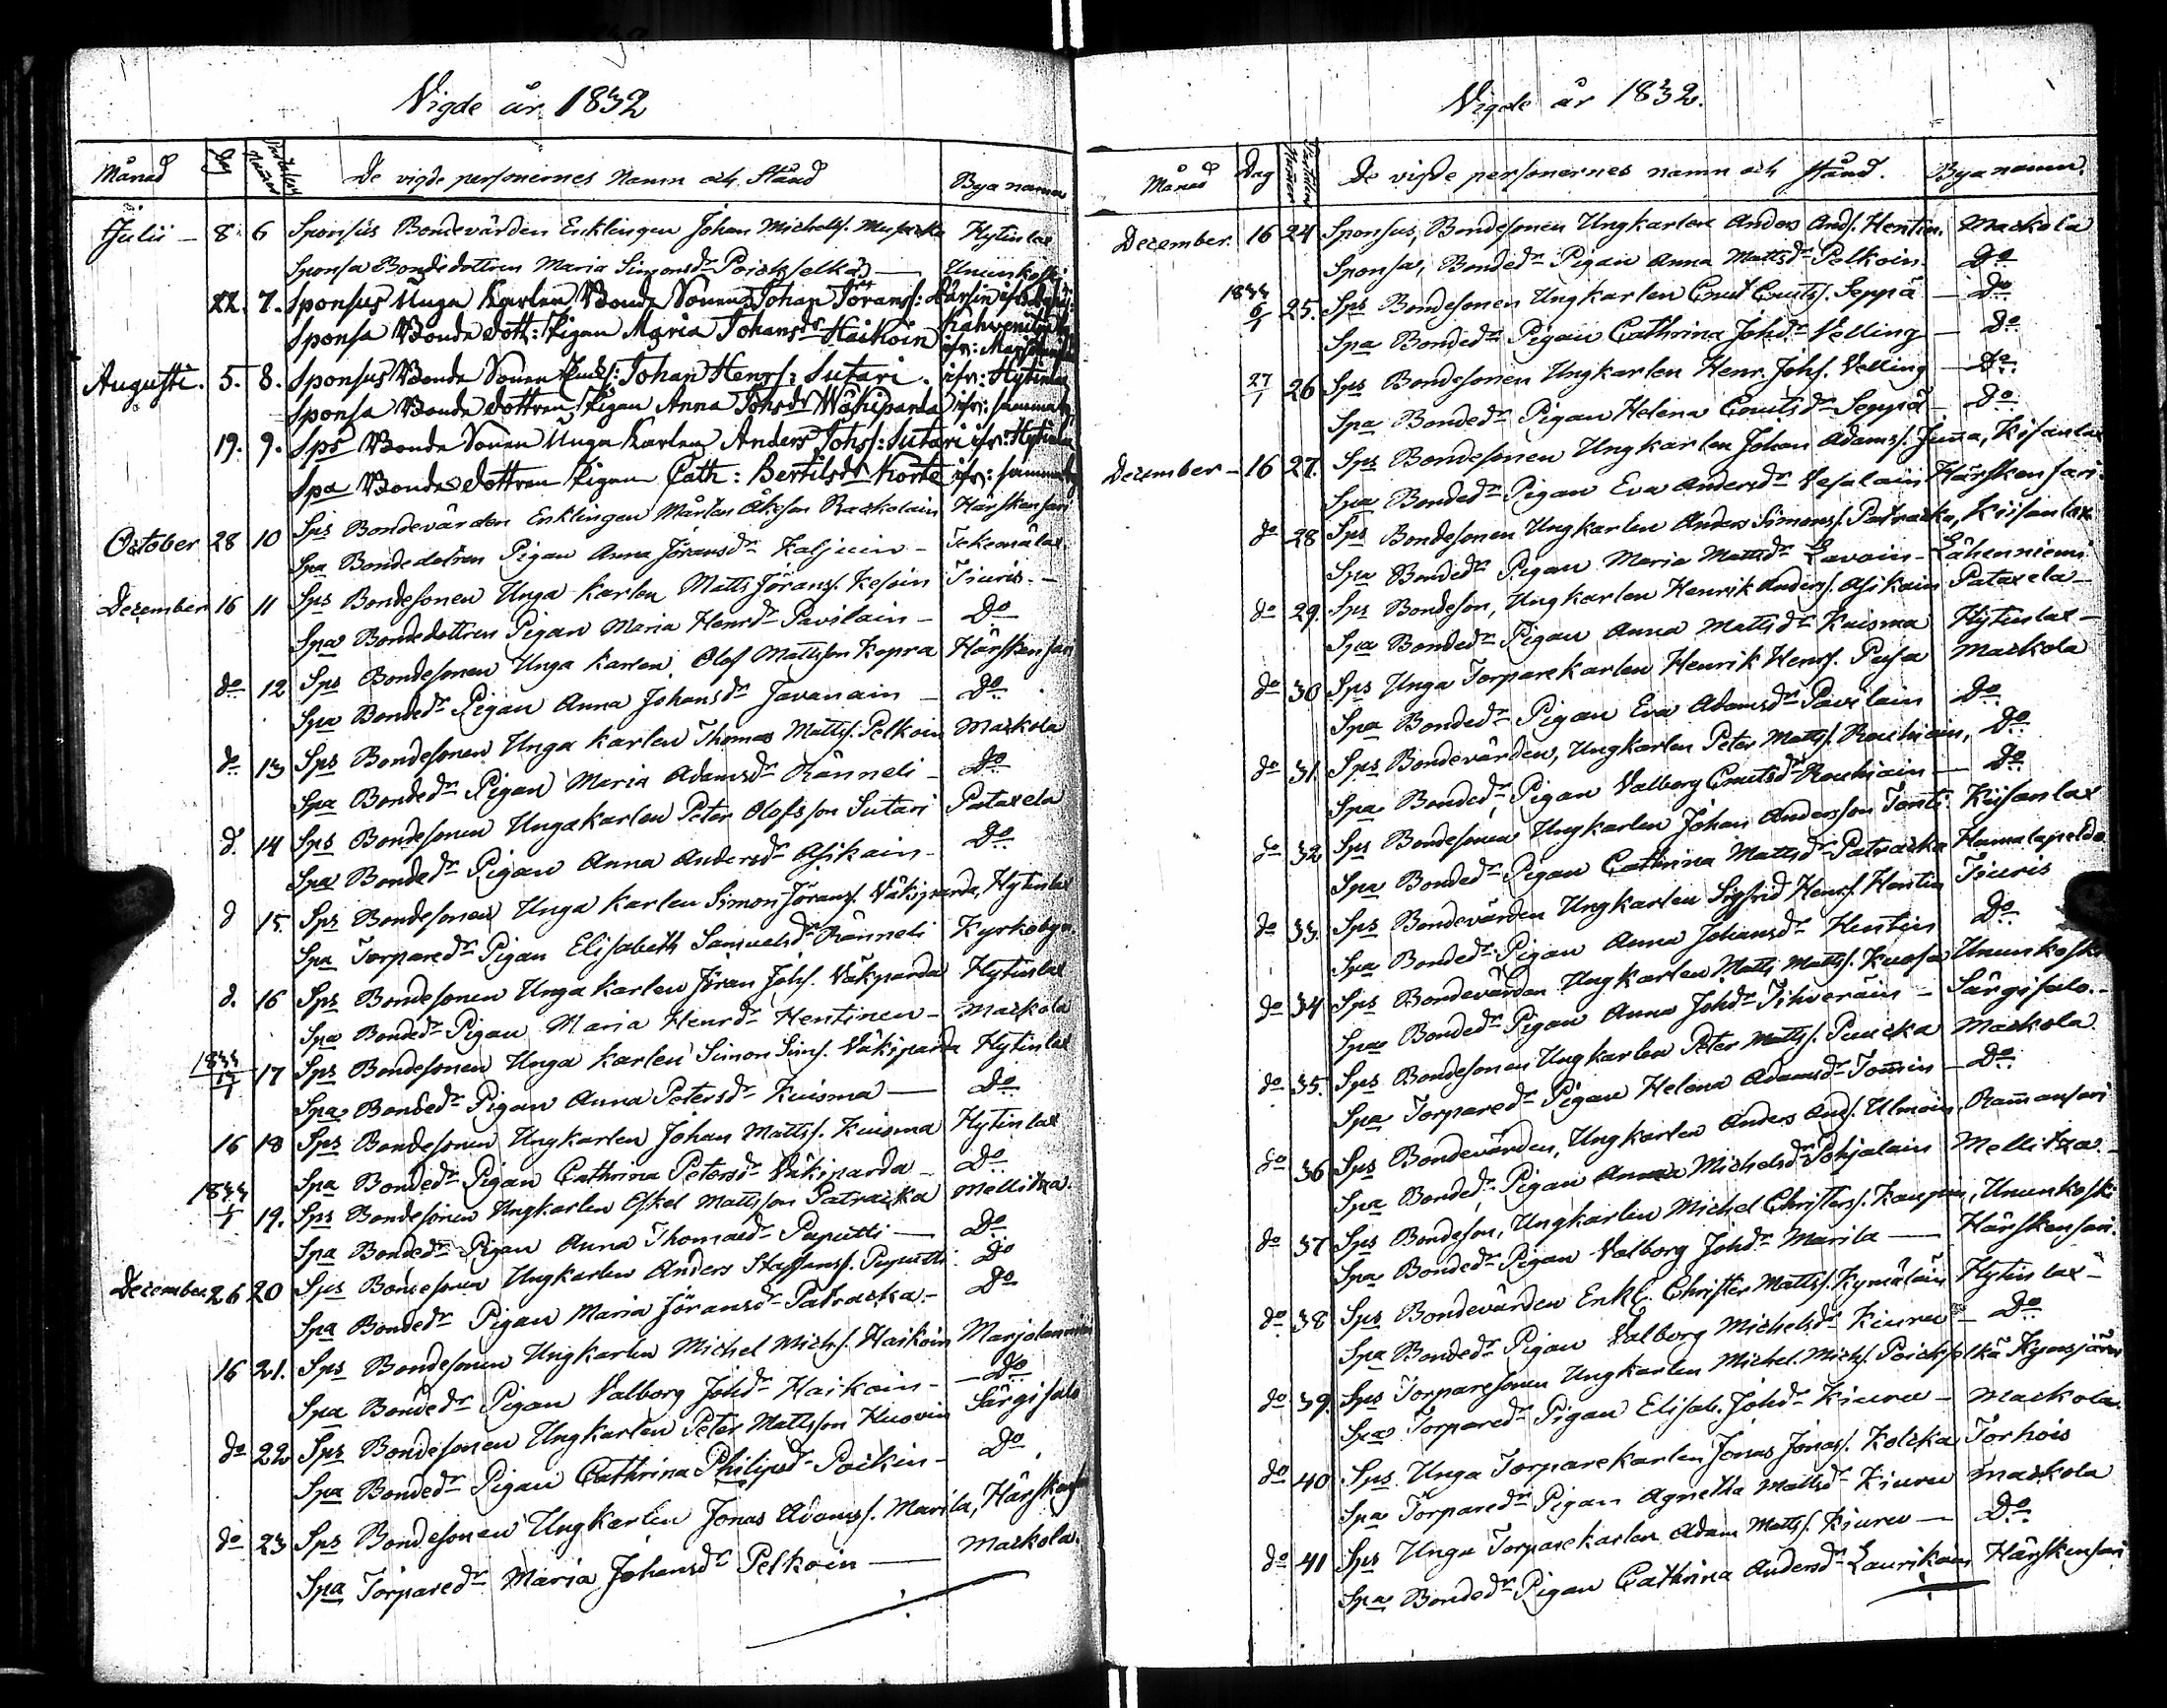 Vigde år 1832
Månad Dag Parternas Numer De vigde personernes Namn och Stånd Bya namn
Julii — 8. 6 Sponsus Bondevärden Enklingen Johan Michelss. Musacka Hytinlax
Sponsa Bondedottren Maria Simonsdr Poickselkä — Ununkoski
22. 7. Sponsus Unga Karlen Bonde Sonen Johan Jöranss: Kärsin
Sponsa Bonde dott: Pigan Maria Johansdr Haikoin
Augusti. 5. 8. Sponsus Bonde Sonen Johan Henrss: Sutari. ifr: Hytinlax
Sponsa Bonde dottren Pigan Anna Johsdr Wäkiparda ifr: samma by
19. 9. Sps Bonde Sonen Unga Karlen Anders Johss: Sutari ifr: Hytinlax
Spa Bondedottren Pigan Cath: Bertilsdr Korte ifr: samma by
October 28 10 Sps Bondevärden Enklingen Mårten Åkeson Rackolain Härskensari
Spa Bondedotren Pigan Anna Jöransdr Kaljuin — Tekemälax.
December 16 11 Sps Bondesonen Unga Karlen Matts Jöranss. Kesoin Tiuris. —
Spa Bondedottren Pigan Maria Henrdr Pavilain — Do
do 12 Sps Bondesonen Unga karlen Olof Mattsson Kopra Härskensari
Spa Bondedr Pigan Anna Johansdr Javanain — Do
do 13 Sps Bondesonen Unga karlen Thomas Mattss. Pelkoin Mackola
Spa Bondedr Pigan Maria Adamsdr Ränneli — Do
d. 14 Sps Bondesonen Ungakarlen Peter Olofsson Sutari Pataxela
Spa Bondedr Pigan Anna Andersdr Asikain — Do
d 15. Sps Bondesonen Unga Karlen Simon Jöranss. Väkiparda, Hytinlax
Spa Torparedr Pigan Elisabeth Samuelsdr Ränneli Kyrkobyn
d. 16 Sps Bondesonen Unga Karlen Jöran Johss. Väkparda Hytinlax
Spa Bondedr Pigan Maria Henrdr Hentinen — Mackola
1833 17 Sps Bondesonen Unga Karlen Simon Sims. Väkiparda Hytinlax
Spa Bondedr Pigan Anna Petersdr Kuisma — Do
16 18 Sps Bondesonen Ungkarlen Johan Mattss. Kuisma Hytinlax
Spa Bondedr Pigan Cathrina Petersdr Väkiparda — Do
1833 19. Sps Bondesonen Ungkarlen Eskel Mattsson Patracka Mellitza.
Spa Bondedr Pigan Anna Thomaedr Paputti — Do
December. 26 20 Sps Bondesonen Ungkarlen Anders Staffanss. Paputti. Do
Spa Bondedr Pigan Maria Jöransdr Patracka. — Do
16 21. Sps Bondesonen Ungkarlen Michel Michs. Haikoin Marjolanniemi
Spa Bondedr Pigan Valborg Johdr Haikoin — Do
do 22 Sps Bondesonen Ungkarlen Peter Mattsson Kuovin Särgisalo
Spa Bondedr Pigan Cathrina Philipsdr Pockin — Do
do 23 Sps Bondesonen Ungkarlen Jonas Adamss. Marila, Härskens.
Spa Torparedr Maria Johansdr Pelkoin — Mackola.
Vigde år 1832.
Månad Dag Parternas Numer De vigde personernes namn och stånd. Bya namn.
December. 16 24 Sponsus, Bondesonen Ungkarlen Anders Ands. Hentin. Mackola
Sponsa, Bondedr Pigan Anna Mattsdr Pelkoin. Do
1833 6/1 25. Sps Bondesonen Ungkarlen Cnut Cnutss. Seppä — Do
Spa Bondedr Pigan Cathrina Johdr Velling — Do
27/1 26 Sps Bondesonen Ungkarlen Henr. Johs. Velling — Do
Spa Bondedr Pigan Helena Cnutsdr Seppä — Do
December — 16 27. Sps Bondesonen Ungkarlen Johan Adamss. Juna, Kisanlax
Spa Bondedr Pigan Eva Andersdr Vesalain Härskensari
do 28 Sps Bondesonen Ungkarlen Anders Simonss. Patracka, Kiisanlax
Spa Bondedr Pigan Maria Mattsdr Lavoin — Lähenniemi
do 29. Sps Bondeson, Ungkarlen Henrik Anderss. Asikain Pataxela —
Spa Bondedr Pigan Anna Mattsdr Kuisma Hytinlax —
do 30 Sps Unga Torparekarlen Henrik Henrs. Pusa Mackola
Spa Bondedr Pigan Eva Adamsdr Pavilain Do
do 31 Sps Bondevärden, Ungkarlen Peter Mattss. Rouhiain, Do
Spa Bondedr Pigan Valborg Cnutsdr Rouhiain — Do
do 32 Sps Bondesonen Ungkarlen Johan Andersson Tonti Kiisanlax
Spa Bondedr Pigan Cathrina Mattsdr Patracka Hamalapeldo
do 33. Sps Bondevärden Ungkarlen Sigfrid Henrs. Hentin Tiuris
Spa Bondedr Pigan Anna Johansdr Hentin Do
do 34 Sps Bondevärden Ungkarlen Matts Mattss. Kuosa Ununkoski
Spa Bondedr Pigan Anna Johdr Tihveräin — Särgisalo. —
do 35. Sps Bondesonen Ungkarlen Peter Mattss. Puucka Mackola
Spa Torparedr Pigan Helena Adamsdr Tomin — Do
do 36 Sps Bondevärden, Ungkarlen Anders Ands. Ulmoin Ramansari
Spa Bondedr Pigan Anna Michelsdr Pohjalain Mellitza. —
do 37 Sps Bondeson, Ungkarlen Michel Christerss. Kaupin, Ununkoski
Spa Bondedr Pigan Valborg Johdr Marila — Härskensari.
do 38 Sps Bondevärden Enkl. Christer Mattss. Kymäläin Hytinlax —
Spa Bondedr Pigan Valborg Michelsdr Kiuru — Do
do 39. Sps Torparesonen Ungkarlen Michel Michs. Poickselkä
Spa Torparedr Pigan Elisab. Johdr Kiuru — Mackola.
do 40 Sps Unga Torparekarlen Jonas Jonass. Kolcka Torhois
Spa Torparedr Pigan Agnetha Mattsdr Kiuru Mackola
do 41 Sps Unga Torparekarlen Adam Mattss. Kiuru — Do
Spa Bondedr Pigan Cathrina Andersdr Laurikain Härskensari